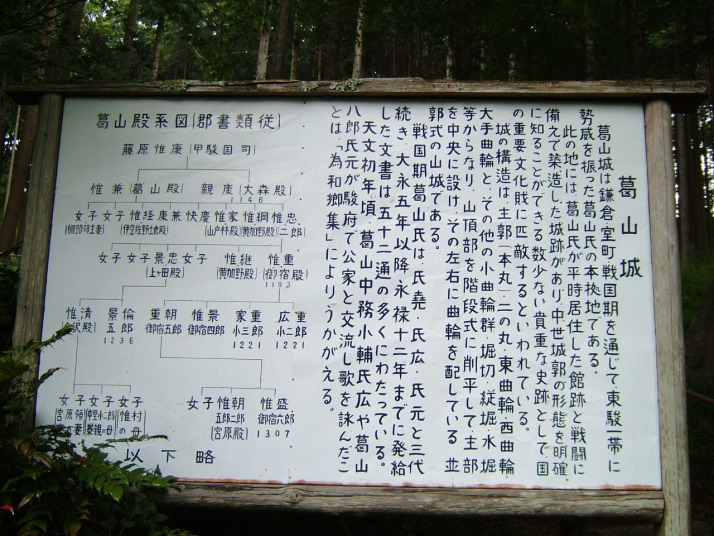 葛山城
葛山城は鎌倉室町戦国期を通じて、東駿一帯に
勢威を振った葛山氏の本拠地である。
此の地には葛山氏が平時居住した館跡と戦闘に
備えて築造した城跡があり、中世城郭の形態を明確
に知ることができる数少ない貴重な史跡として国
の重要文化財に匹敵するといわれている。
城の構造は、主郭(本丸)二の丸、東曲輪西曲輪
大手曲輪と、その他の小曲輪群・堀切・竪堀・水堀
等からなり、山頂部を階段式に削平して主部
を中央に設け、その左右に曲輪を配している並
郭式の山城である。
戦国期葛山氏は、氏堯・氏広・氏元と三代
続き、大永五年以降永禄十二年までに発給
した文書は五十二通の多くにわたっている。
天文初年頃、葛山中務小輔氏広や葛山
八郎氏元が駿府で公家と交流し歌を詠んだこ
とは「為和卿集」によりうかがえる。
葛山殿系図(郡書類従)
藤原惟康(甲駿国司)
惟兼(葛山殿) 親康(大森殿)
1146
女子 女子 惟経 康兼 快慶 惟家 惟綱 惟忠
(伊豆佐野太郎殿) (山戸樺殿) (黄加野殿) 二郎
女子 女子 景忠 女子 惟継 惟重
(上ヶ田殿) (黄加野殿) (御宿殿)
1193
惟清 景倫 重朝 惟景 家重 広重
五郎 御宿五郎 御宿四郎 小三郎 小二郎
1236 1221 1221
女子 女子 女子 女子 惟朝 惟盛
惟村の母 五郎二郎 御宿六郎
(宮原殿) 1307
以下略